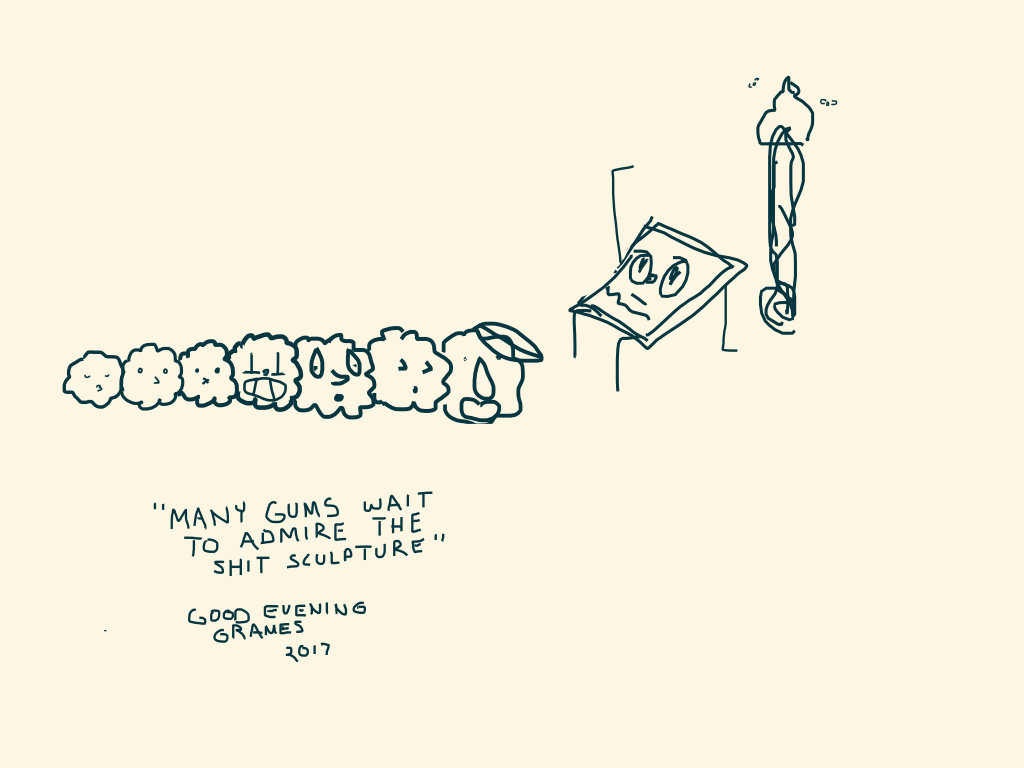 "MANY GUMS WAIT
TO ADMIRE THE
SHIT SCULPTURE"
GOOD EVENING
GRAMES
2017